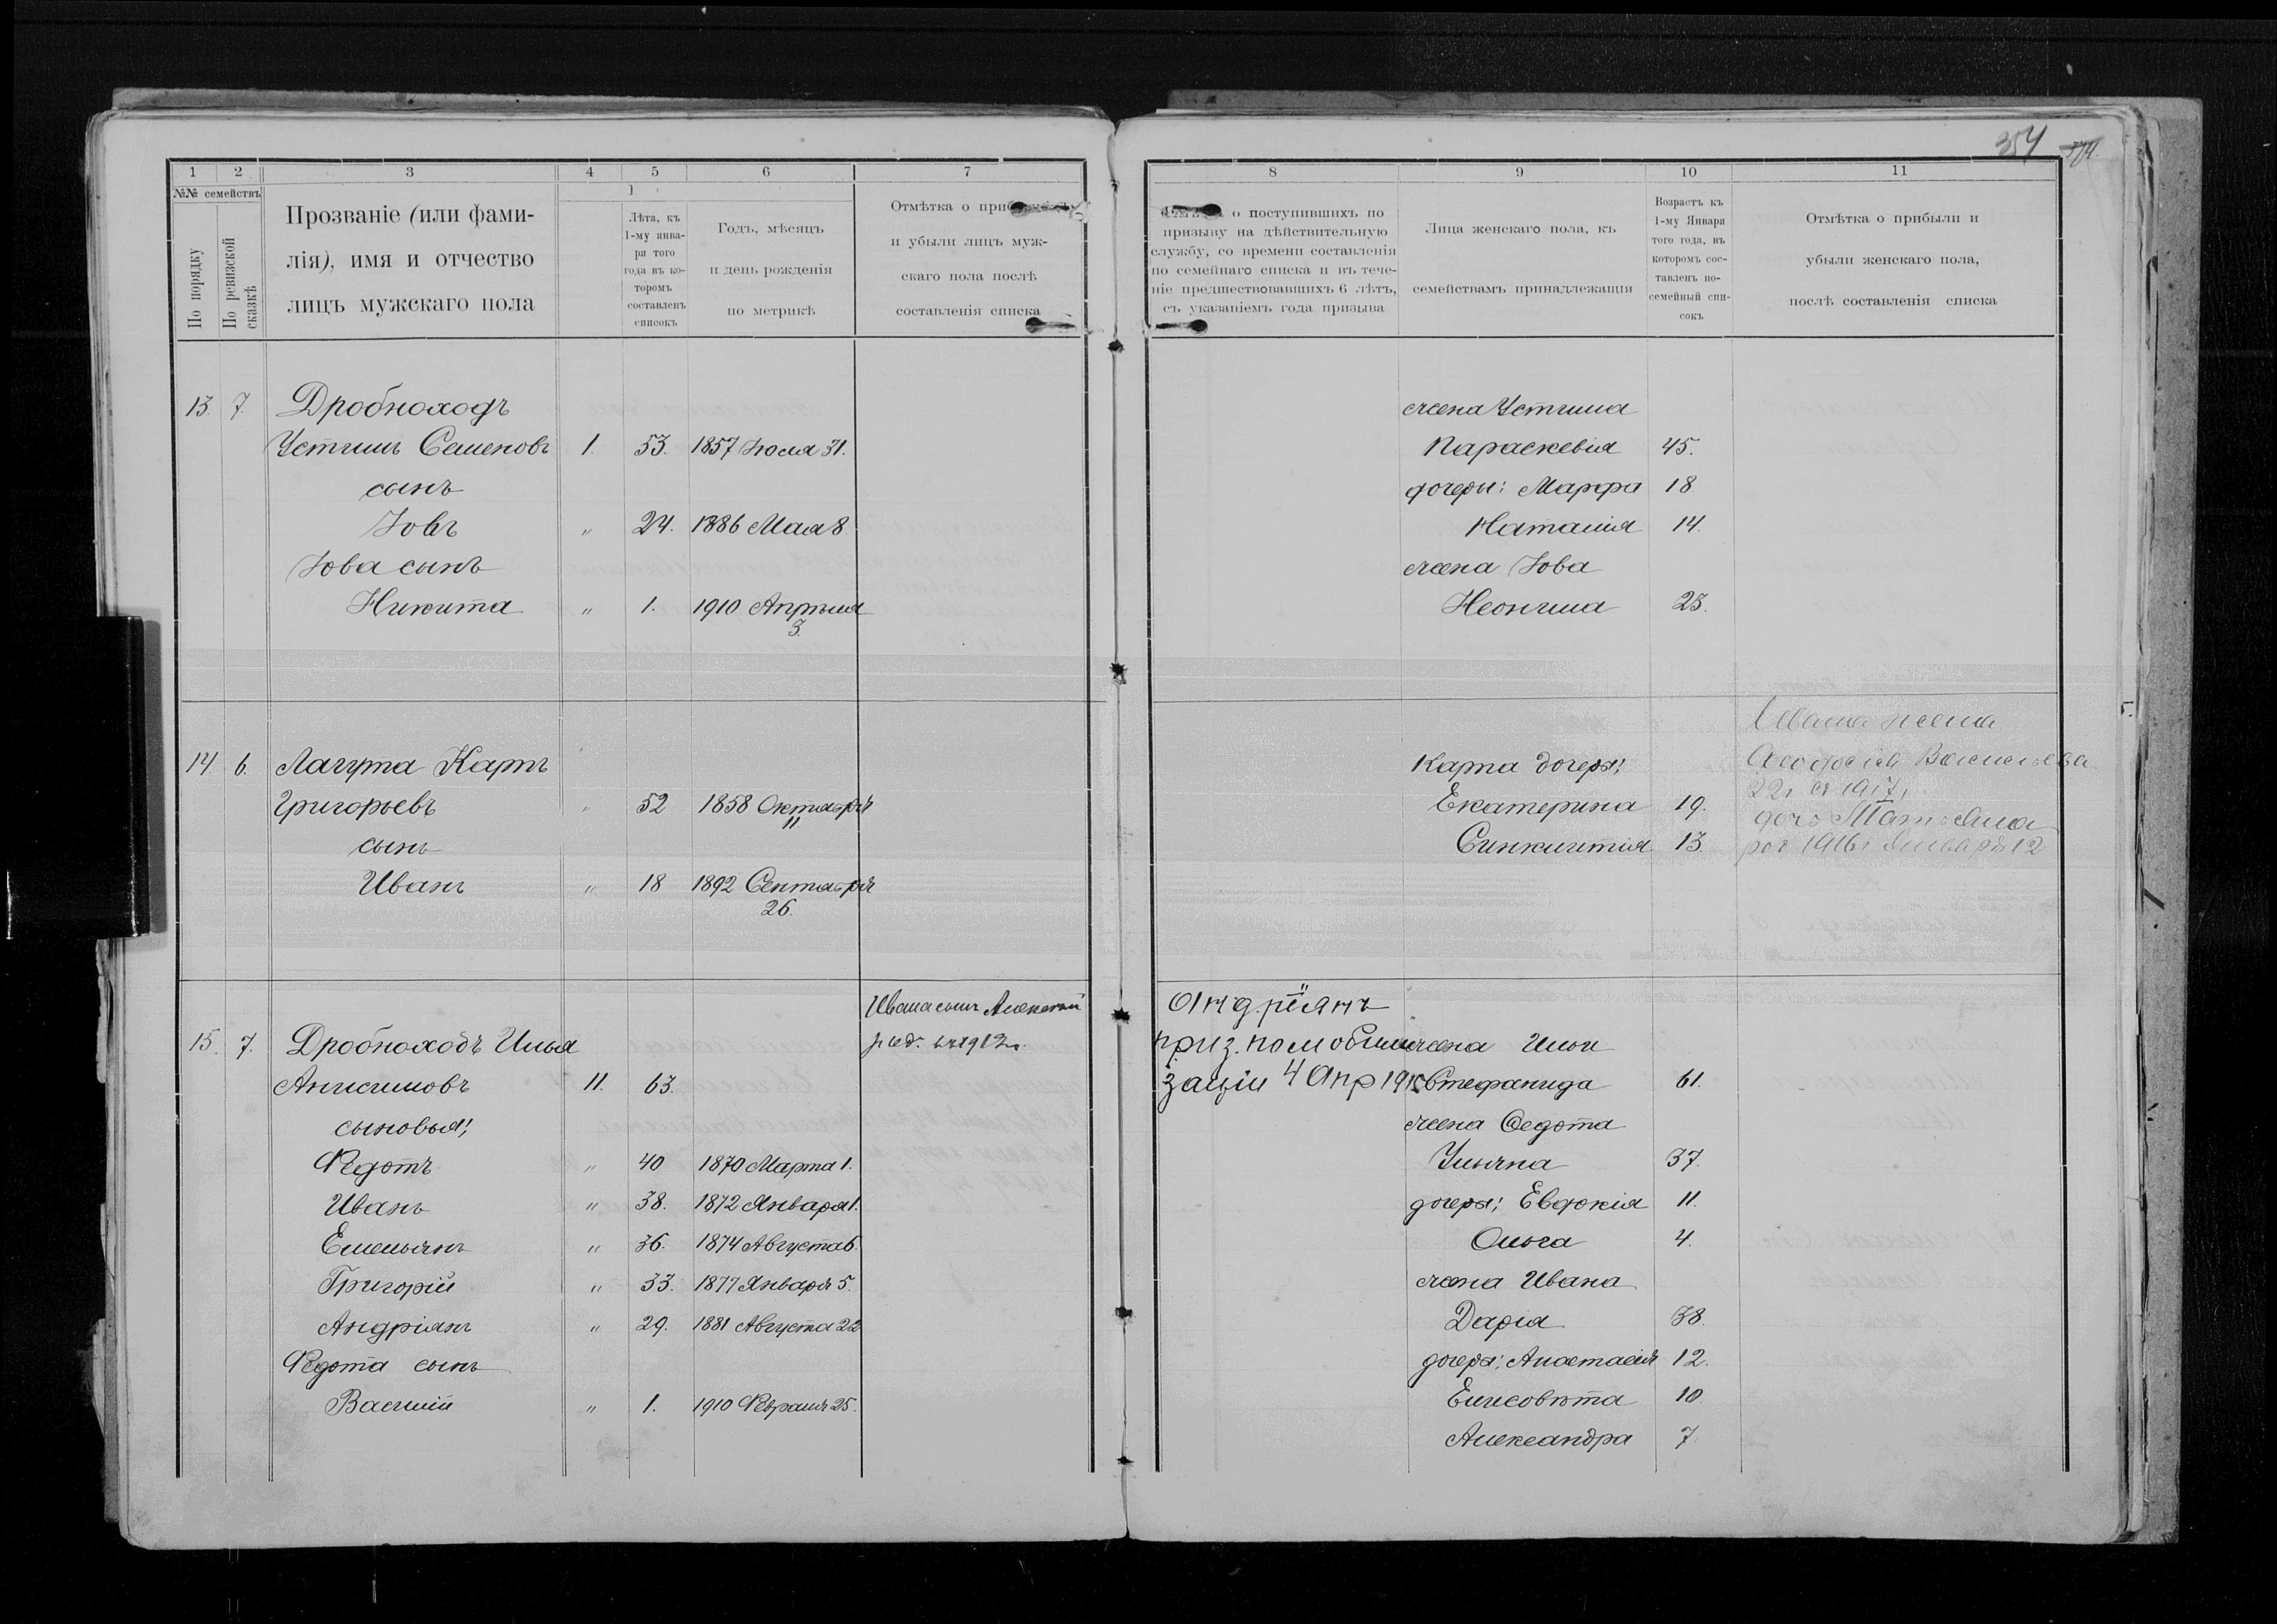 354
1 2 3 4 5 6 7
№№ семействъ
По порядку
По ревизской сказкѣ
Прозваніе (или фами-
лія), имя и отчество
лицъ мужскаго пола
Лѣта, къ
1-му янва-
ря того
года въ ко-
торомъ
составленъ
списокъ
Годъ, мѣсяцъ
и день рожденія
по метрикѣ
Отмѣтка о
и убыли лицъ муж-
скаго пола послѣ
составленія списка
13. 7. Дробноходъ
Устинъ Семеновъ 1. 53. 1857 Іюля 31.
сынъ
Іовъ „ 24. 1886 Мая 8
Іова сынъ
Никита „ 1. 1910 Апрѣля
3.
14. 6. Лагута Карпъ
Григорьевъ „ 52 1858 Октября
11.
сынъ
Иванъ „ 18 1892 Сентября
26.
Ивана сынъ Алексѣй
15. 7. Дробноходъ Илья
Анисимовъ 11. 63.
сыновья;
Ѳедотъ „ 40 1870 Марта 1.
Иванъ „ 38. 1872 Января 1.
Емельянъ „ 36. 1874 Августа 6.
Григорій „ 33. 1877 Января 5.
Андріянъ „ 29. 1881 Августа 22
Ѳедота сынъ
Василій „ 1. 1910 Февраля 25.
8 9 10 11
о поступившихъ по
призыву на дѣйствительную
службу, со времени составленія
по семейнаго списка и въ тече-
ніе предшествовавшихъ 6 лѣтъ,
съ указаніемъ года призыва
Лица женскаго пола, къ
семействамъ принадлежащія
Возрастъ къ
1-му Января
того года, въ
которомъ сос-
тавленъ по-
семейный спи-
сокъ
Отмѣтка о прибыли и
убыли женскаго пола,
послѣ составленія списка
жена Устина
Параскевія 45.
дочеры: Марфа 18.
Наталія 14.
жена Іова
Неонила 23.
Ивана жена
Карпа дочеры; Ѳеодосія Васильева
Екатерина 19. 22 1917
дочь
Синклитія 13. 1916 Января 12
Андріянъ
приз. по мобили жена Ильи
заціи 4 Апр Стефанида 61.
жена Ѳедота
Ульяна 37.
дочеры; Евдокія 11.
Ольга 4.
жена Ивана
Дарія 38.
дочеры; Анастасія 12.
Елисовѣта 10
Александра 7.